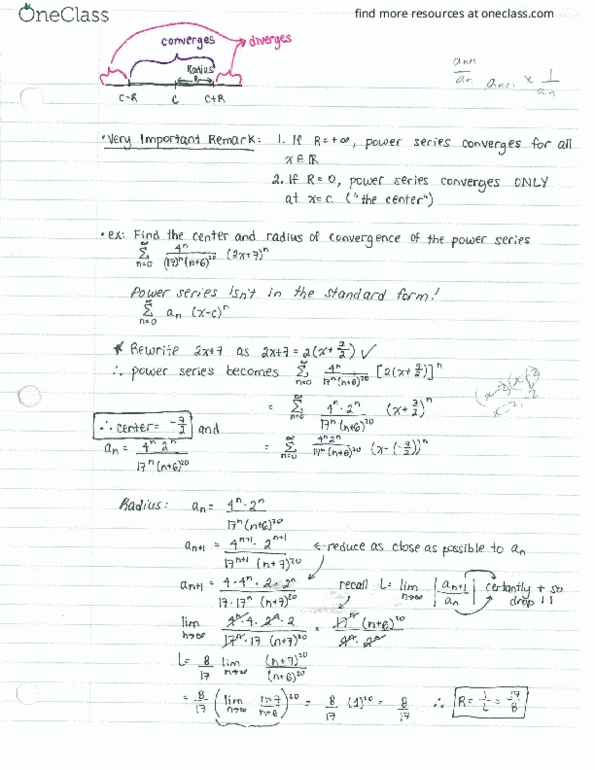 OneClass
find more resources at oneclass.com
converges
diverges
Radius
R
C-R C C+R
an+1/an an+1 × 1/an
• Very Important Remark: 1. If R=+∞, power series converges for all
x∈ℝ
2. If R=0, power series converges ONLY
at x=c. ("the center")
• ex: Find the center and radius of convergence of the power series
∞ Σ n=0 4^n/(17)^n(n+6)^20 (2x+7)^n
Power series isn't in the standard form!
∞ Σ n=0 an (x-c)^n
* Rewrite 2x+7 as 2x+7=2(x+7/2) ✓
∴ power series becomes ∞ Σ n=0 4^n/17^n(n+6)^20 [2(x+7/2)]^n
= ∞ Σ n=0 4^n·2^n/17^n(n+6)^20 (x+7/2)^n
∴ center= -7/2 and
an = 4^n 2^n/17^n(n+6)^20
= ∞ Σ n=0 4^n 2^n/17^n(n+6)^20 (x-(-7/2))^n
Radius: an = 4^n·2^n/17^n(n+6)^20
an+1 = 4^n+1·2^n+1/17^n+1 (n+7)^20 ← reduce as close as possible to an
an+1 = 4·4^n·2·2^n/17·17^n (n+7)^20 recall L= lim n→∞ |an+1/an| certantly + so drop | |
lim n→∞ 4^n·4·2^n·2/17^n·17 (n+7)^20 × 17^n (n+6)^20/4^n·2^n
L= 8/17 lim n→∞ (n+7)^20/(n+6)^20
= 8/17 (lim n→∞ n+7/n+6)^20 = 8/17 (1)^20 = 8/17 ∴ R= 1/L = 17/8